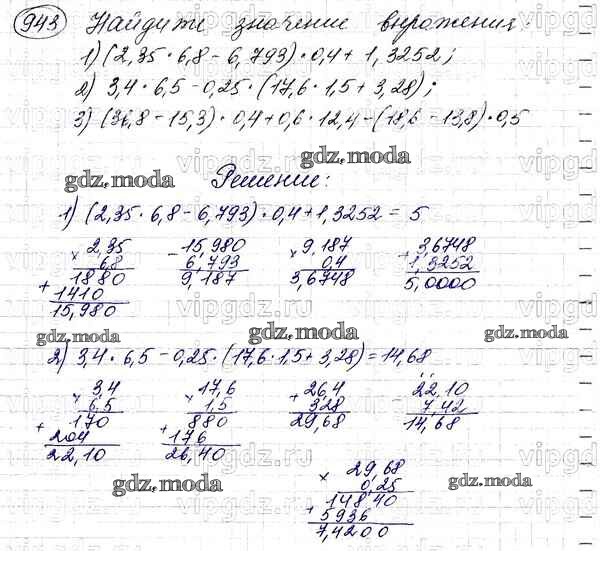 943 Найдите значение выражения:
1) (2,35 · 6,8 - 6,793) · 0,4 + 1,3252;
2) 3,4 · 6,5 - 0,25 · (17,6 · 1,5 + 3,28);
3) (36,8 - 15,3) · 0,4 + 0,6 · 12,4 - (18,6 - 13,8) · 0,5
gdz.moda
gdz.moda Решение:
1) (2,35 · 6,8 - 6,793) · 0,4 + 1,3252 = 5
× 2,35 - 15,980 × 9,187 + 3,6748
6,8 6,793 0,4 1,3252
1880 9,187 3,6748 5,0000
+ 1410
15,980
gdz.moda gdz.moda gdz.moda
2) 3,4 · 6,5 - 0,25 · (17,6 · 1,5 + 3,28) = 14,68
× 3,4 × 17,6 + 26,4 22,10
6,5 1,5 328 7,42
170 880 29,68 14,68
+ 204 + 176
22,10 26,40
× 29,68
gdz.moda 0,25 gdz.moda
148 40
+ 5936
7,4200
vipgdz